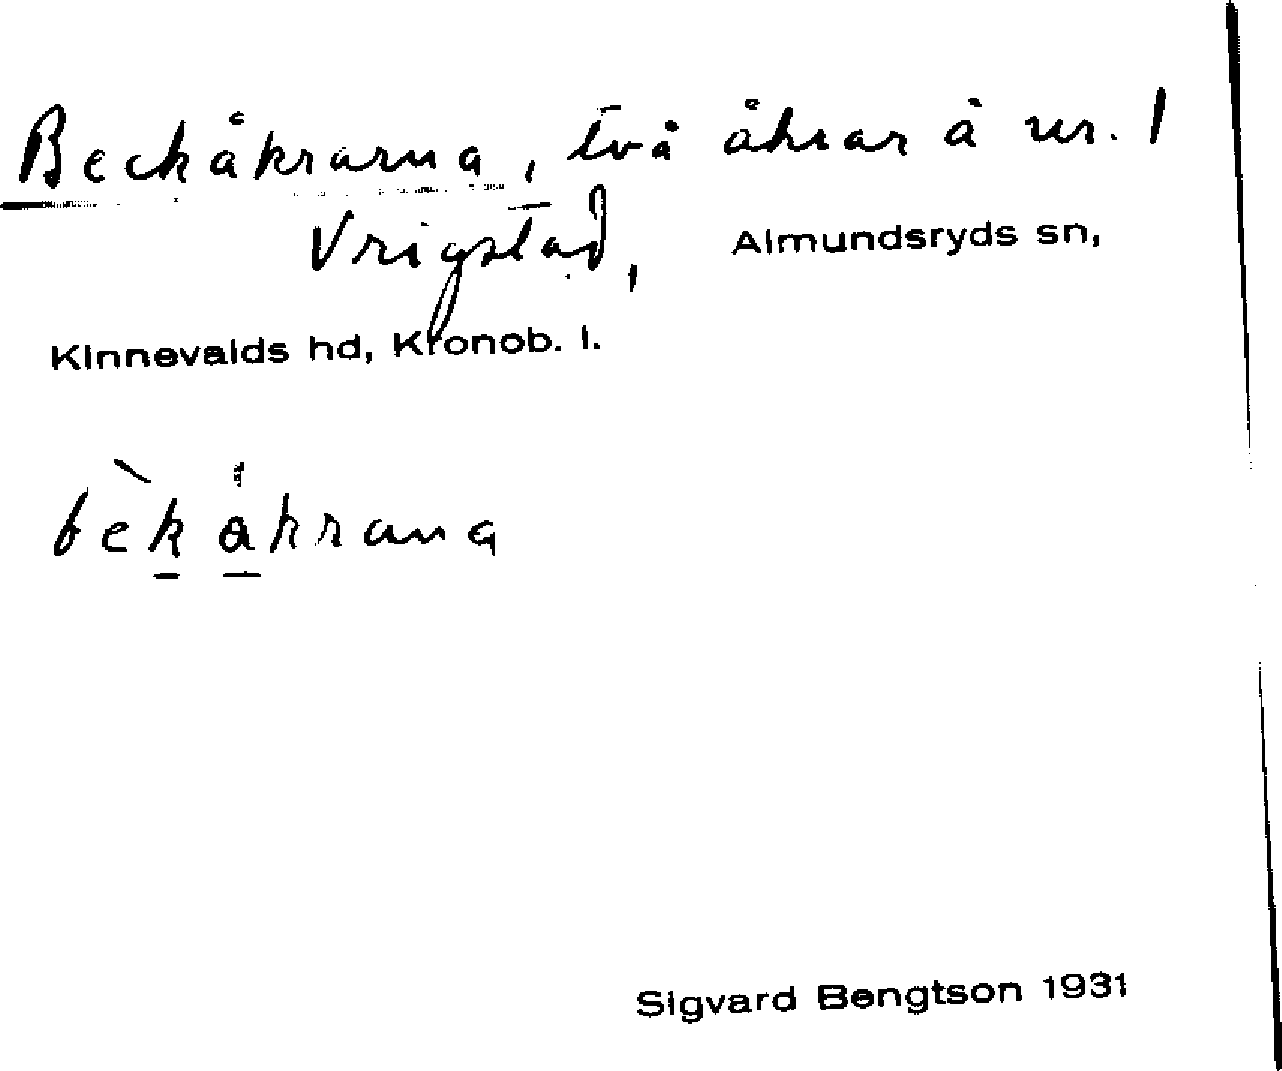 Beckåkrarna, två åkrar å nr. 1
Vrigstad, Almundsryds sn,
Kinnevalds hd, Kronob. l.
bèkåkrana
Sigvard Bengtson 1931